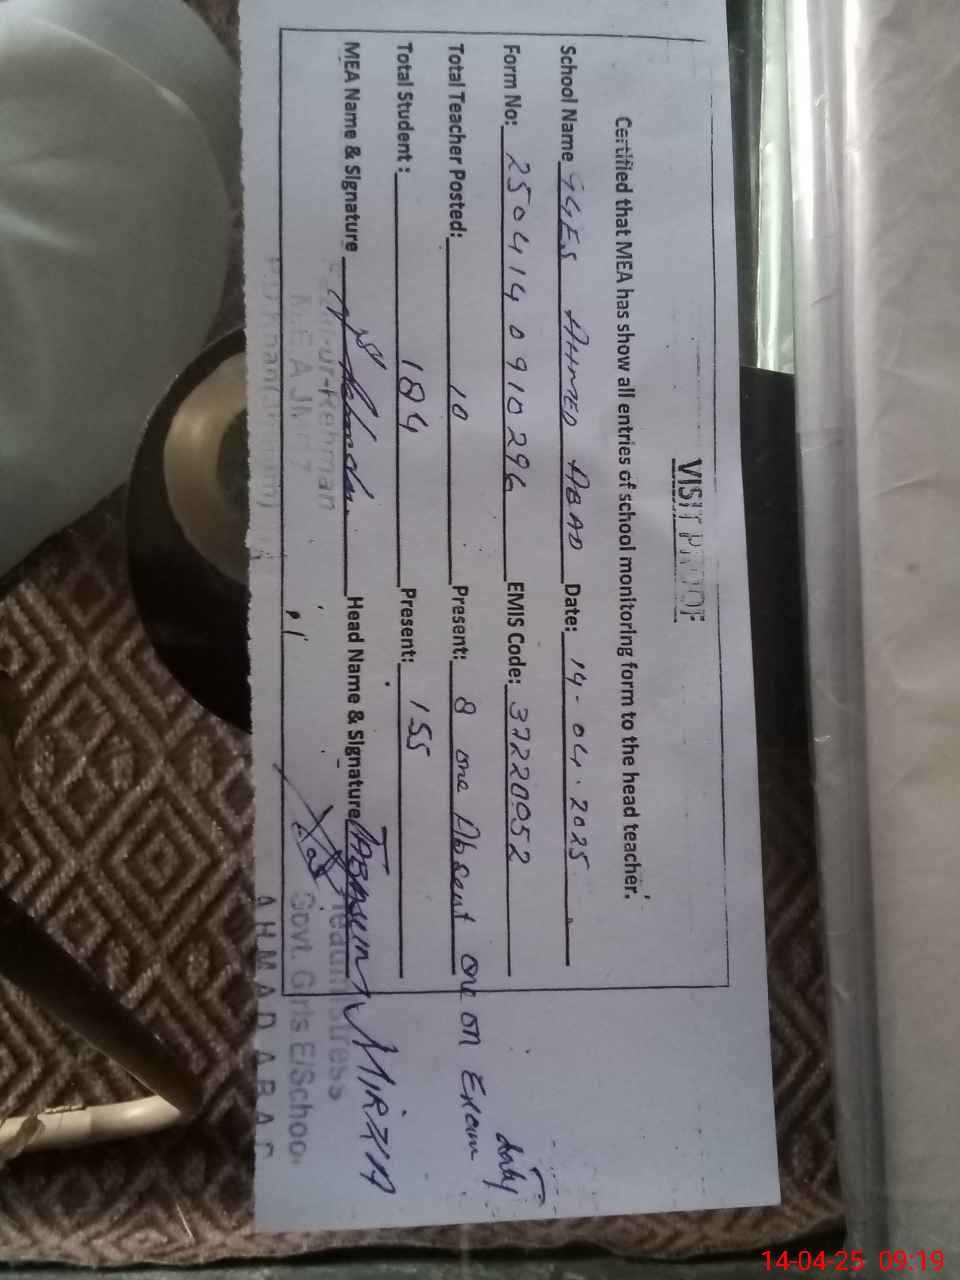 VISIT PROOF
Certified that MEA has show all entries of school monitoring form to the head teacher.
School Name GGES AHMED ABAD Date: 14-04.2025
Form No: 250414 0910296 EMIS Code: 37220052
Total Teacher Posted: 10 Present: 8 one Absent one on Exam duty
Total Student: 184 Present: 155
MEA Name & Signature Head Name & Signature TABASUM MIRZA
-ur-Rehman
Headmistress
M.E.A
Govt. Girls E/School
AHMADABAD
14-04-25 09:19